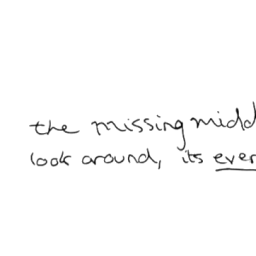 the missing midd
look around, its ever